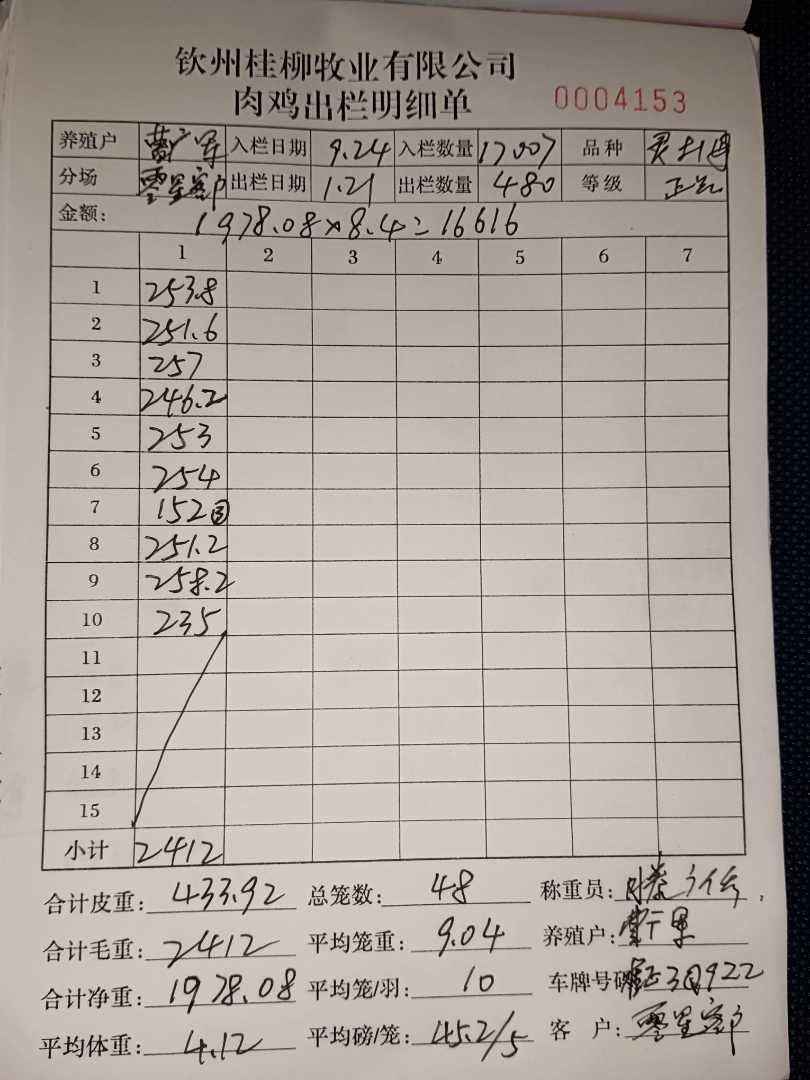 钦州桂柳牧业有限公司
肉鸡出栏明细单 0004153
养殖户 入栏日期 9.24 入栏数量 17007 品种
分场 零星客户 出栏日期 1.21 出栏数量 480 等级
金额: 1978.08×8.4=16616
1 2 3 4 5 6 7
1 253.8
2 251.6
3 257
4 246.2
5 253
6 254
7 152
8 251.2
9 258.2
10 235
11
12
13
14
15
小计 2412
合计皮重: 433.92 总笼数: 48 称重员:
合计毛重: 2412 平均笼重: 9.04 养殖户:
合计净重: 1978.08 平均笼/羽: 10 车牌号码
平均体重: 4.12 平均磅/笼: 45.2/5 客 户: 零星客户